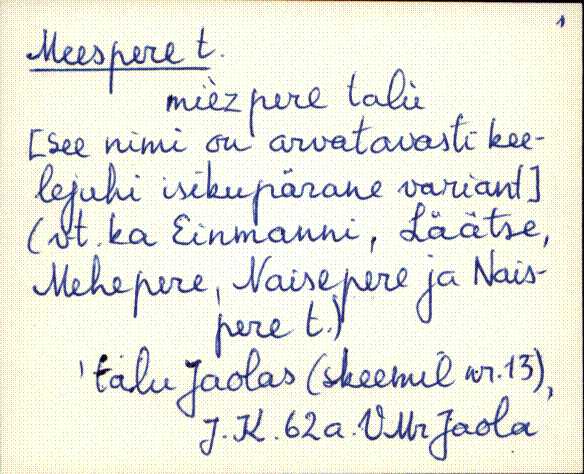 1
Meespere t.
mièz pere talu
[see nimi on arvatavasti kee-
lejuhi isikupärane variant]
(vt. ka Einmanni, Läätse,
Mehepere, Naisepere ja Nais-
pere t.)
talu Jaolas (skeemil nr. 13),
J.K. 62 a. VMr Jaola